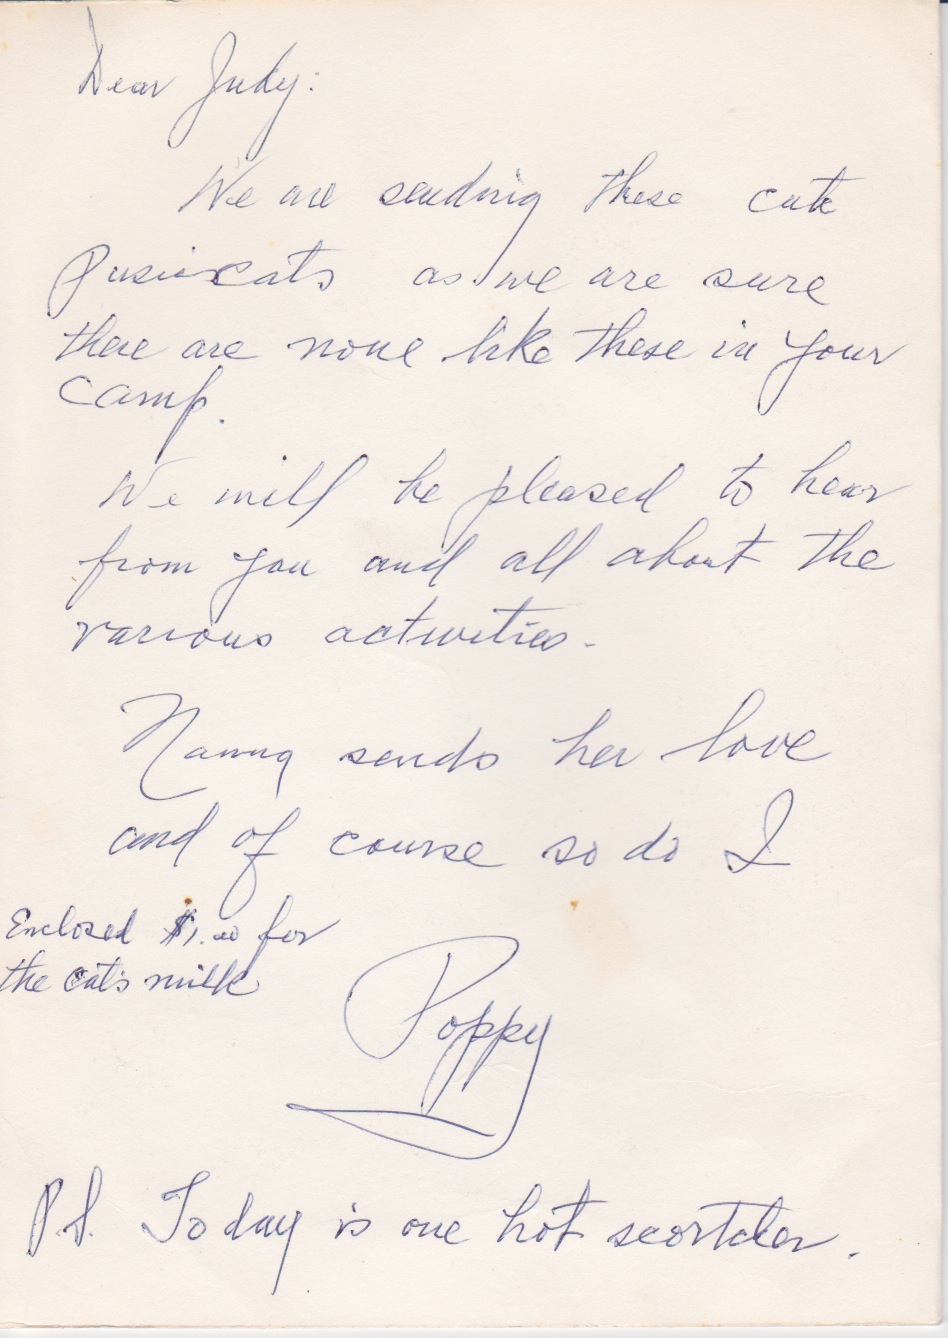 Dear Judy:
We are sending these cute
Pusiecats as we are sure
there are none like these in your
camp.
We will be pleased to hear
from you and all about the
various activities.
Nanna sends her love
and of course so do I
Enclosed $1.00 for
the cats milk
Poppy
P.S. Today is one hot scortcher.